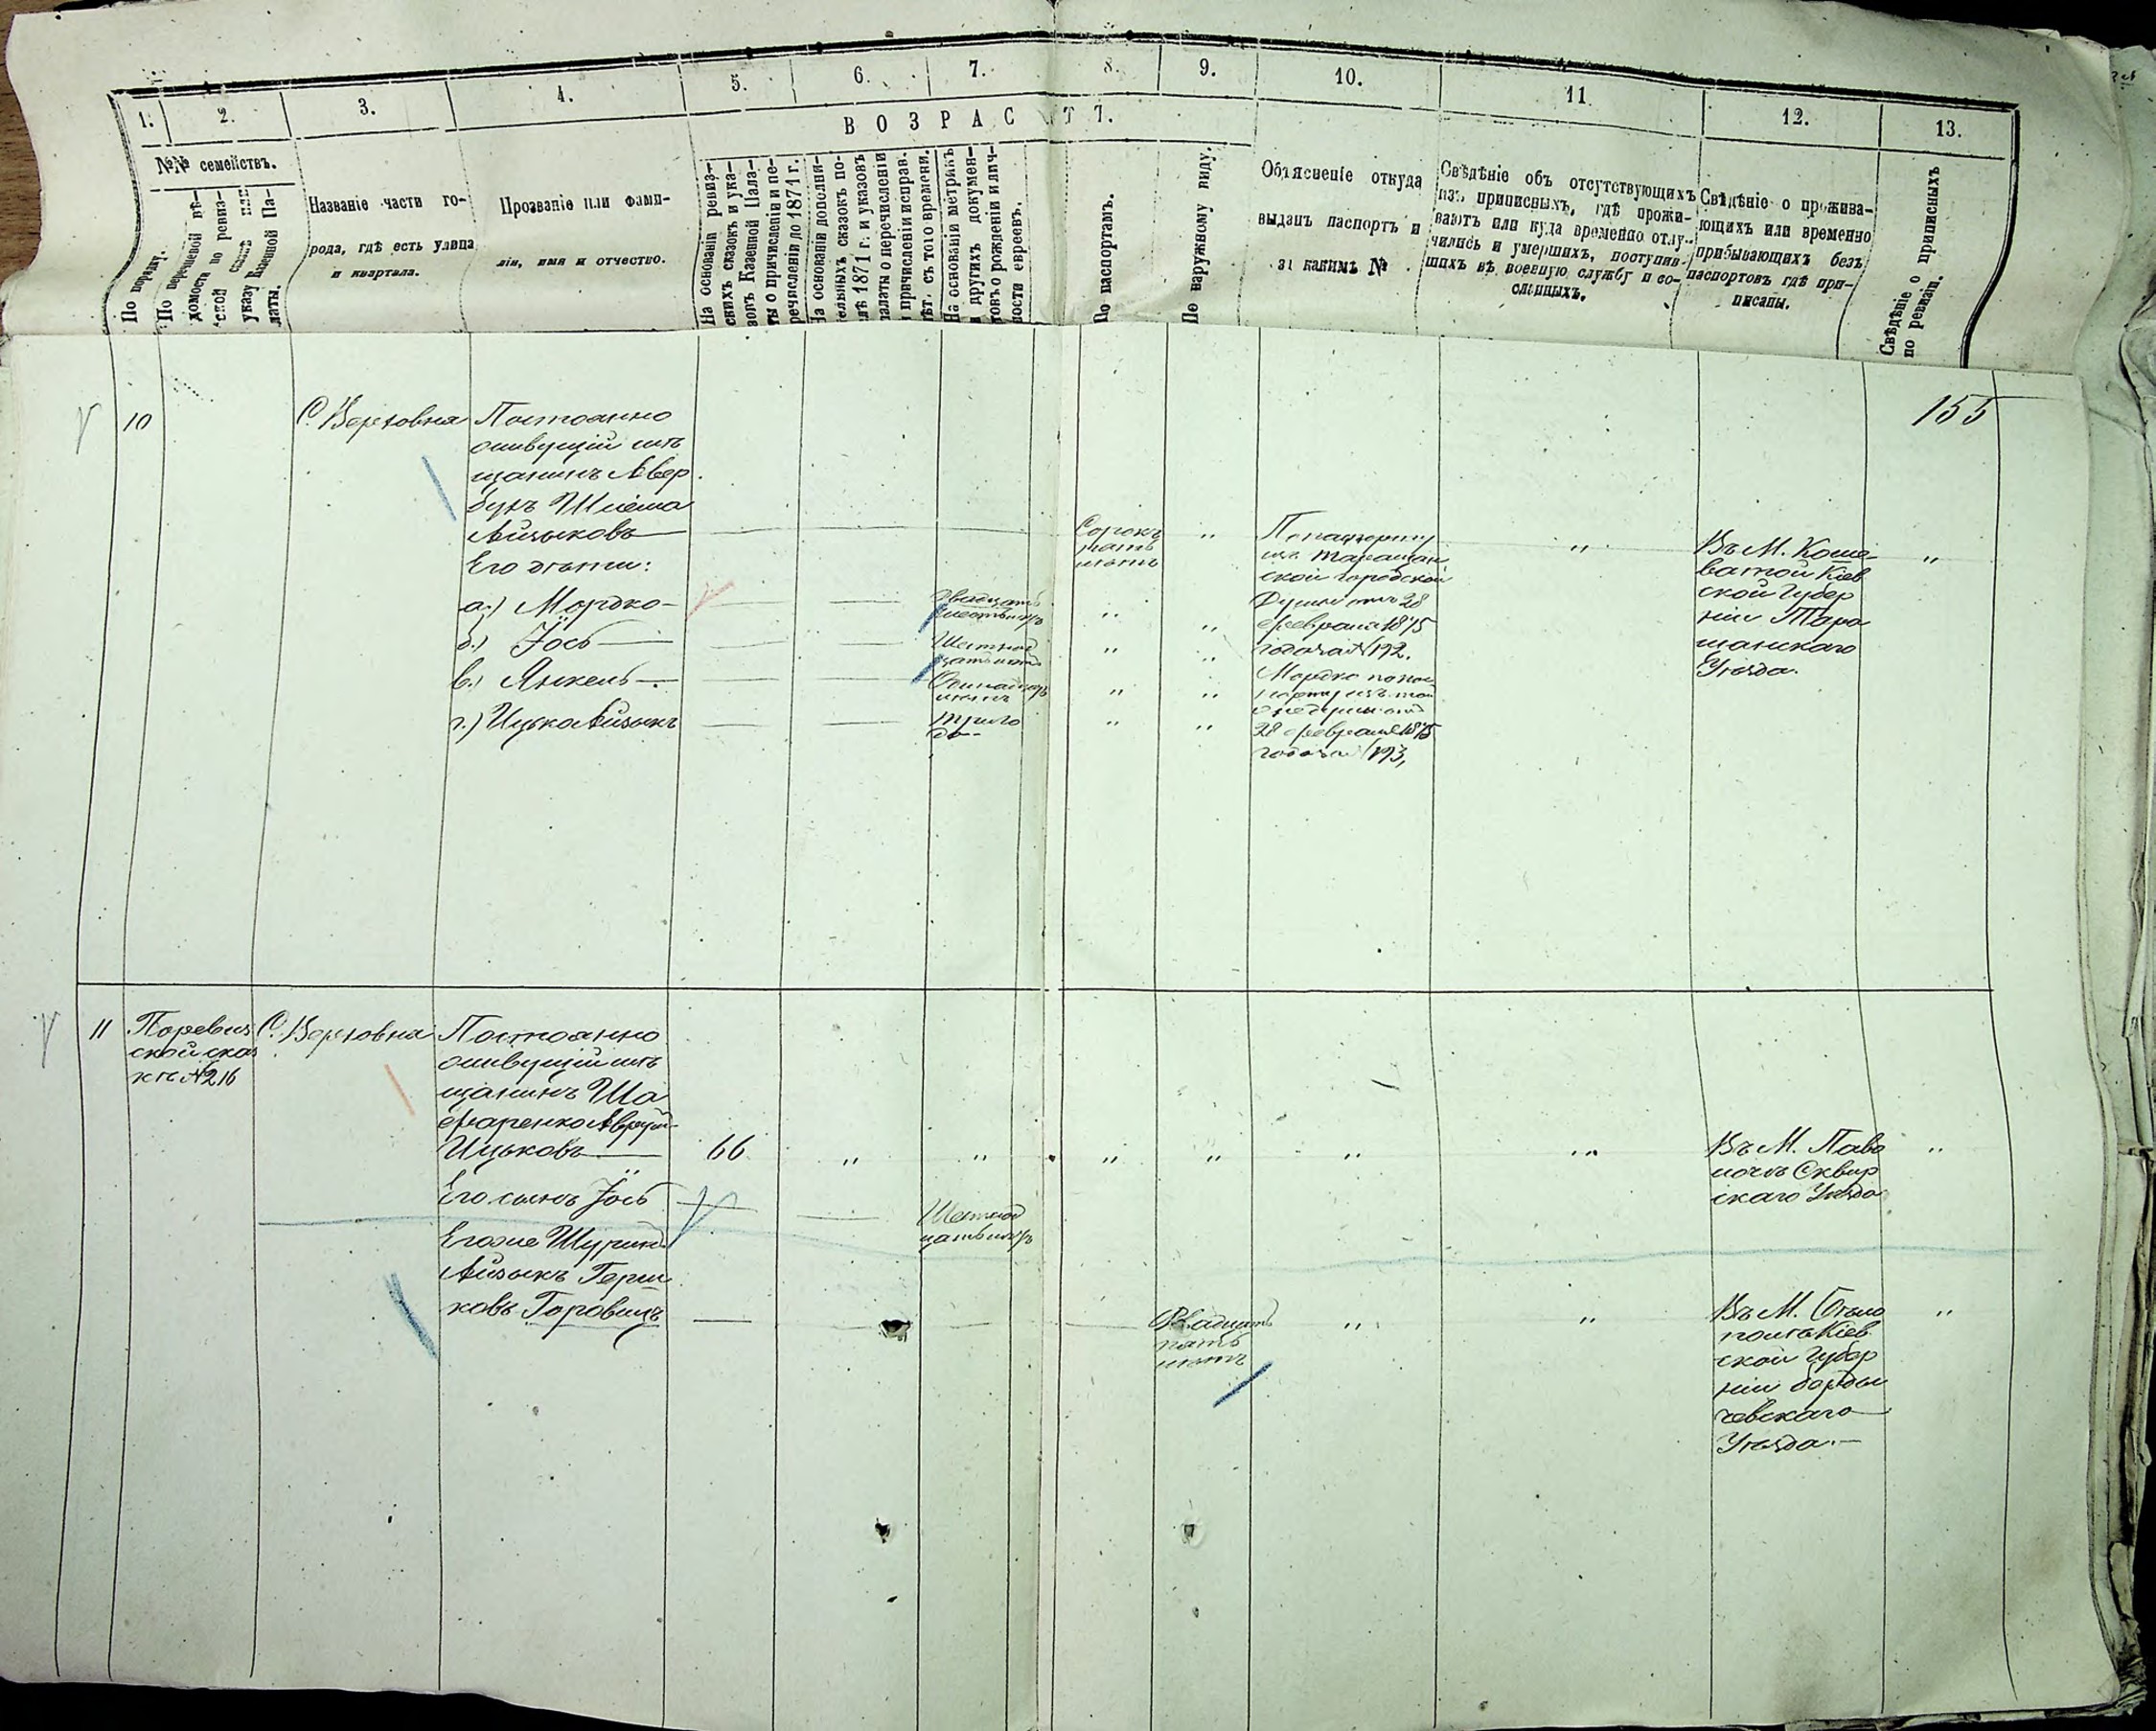 1. 2. 3. 4. 5. 6. 7. 8. 9. 10. 11. 12. 13.
ВОЗРАСТЪ.
№№ семействъ.
По порядку.
По перечневой вѣ-
домости по ревиз-
ской сказкѣ или
указу Казенной Па-
латы.
Названіе части го-
рода, гдѣ есть улица
и квартала.
Прозваніе или фами-
лія, имя и отчество.
На основаніи ревиз-
скихъ сказокъ и ука-
зовъ Казенной Пала-
ты о причисленіи и пе-
речисленіи до 1871 г.
На основаніи дополни-
тельныхъ сказокъ по-
слѣ 1871 г. и указовъ
палаты о перечисленіи
и причисленіи исправ.
лѣт. съ того времени.
На основаніи метрикъ
и другихъ докумен-
товъ о рожденіи и лич-
ности евреевъ.
По паспортамъ.
По наружному виду.
Объясненіе откуда
выданъ паспортъ и
за какимъ №
Свѣдѣніе объ отсутствующихъ
изъ приписныхъ, гдѣ прожи-
ваютъ или куда временно отлу-
чились и умершихъ, поступив-
шихъ въ военную службу и со-
сланныхъ.
Свѣдѣніе о прожива-
ющихъ или временно
прибывающихъ безъ
паспортовъ гдѣ при-
писаны.
Свѣдѣніе о приписныхъ
по ревизіи.
155
10
С. Верховня
Постоянно
живущій мѣ
щанинъ Авер
бухъ Шлёма
Айзыковъ
Его дѣти:
а.) Мордко
б.) Іось
в.) Янкель
г.) Ицько Айзыкъ
Двадцать
Шестнад
цать лѣтъ
Одинадцать
лѣтъ
три го
да
Сорокъ
пять
лѣтъ
По паспорту
изъ Таращан
ской городской
Думы отъ 28
февраля 1875
года за № 192.
Мордко по пас
порту изъ той
28 февраля 1875
года за № 193,
Въ М. Коше
ватой Кіев
ской Губер
ніи Тара
щанскаго
Уѣзда.
11
По ревиз
ской сказ
кѣ № 216
С. Верховня
Постоянно
живущій мѣ
щанинъ Ша
фаренко Аврум
Ицьковъ
66
Его сынъ Іось
Шестнад
цать лѣтъ
Его же Шуринъ
Айзыкъ Герш
ковъ Горовицъ
Двадцать
пять
лѣтъ
Въ М. Паво
лочь Сквир
скаго Уѣзда
Въ М. Бѣло
полѣ Кіев
ской Губер
ніи Берды
чевскаго
Уѣзда.